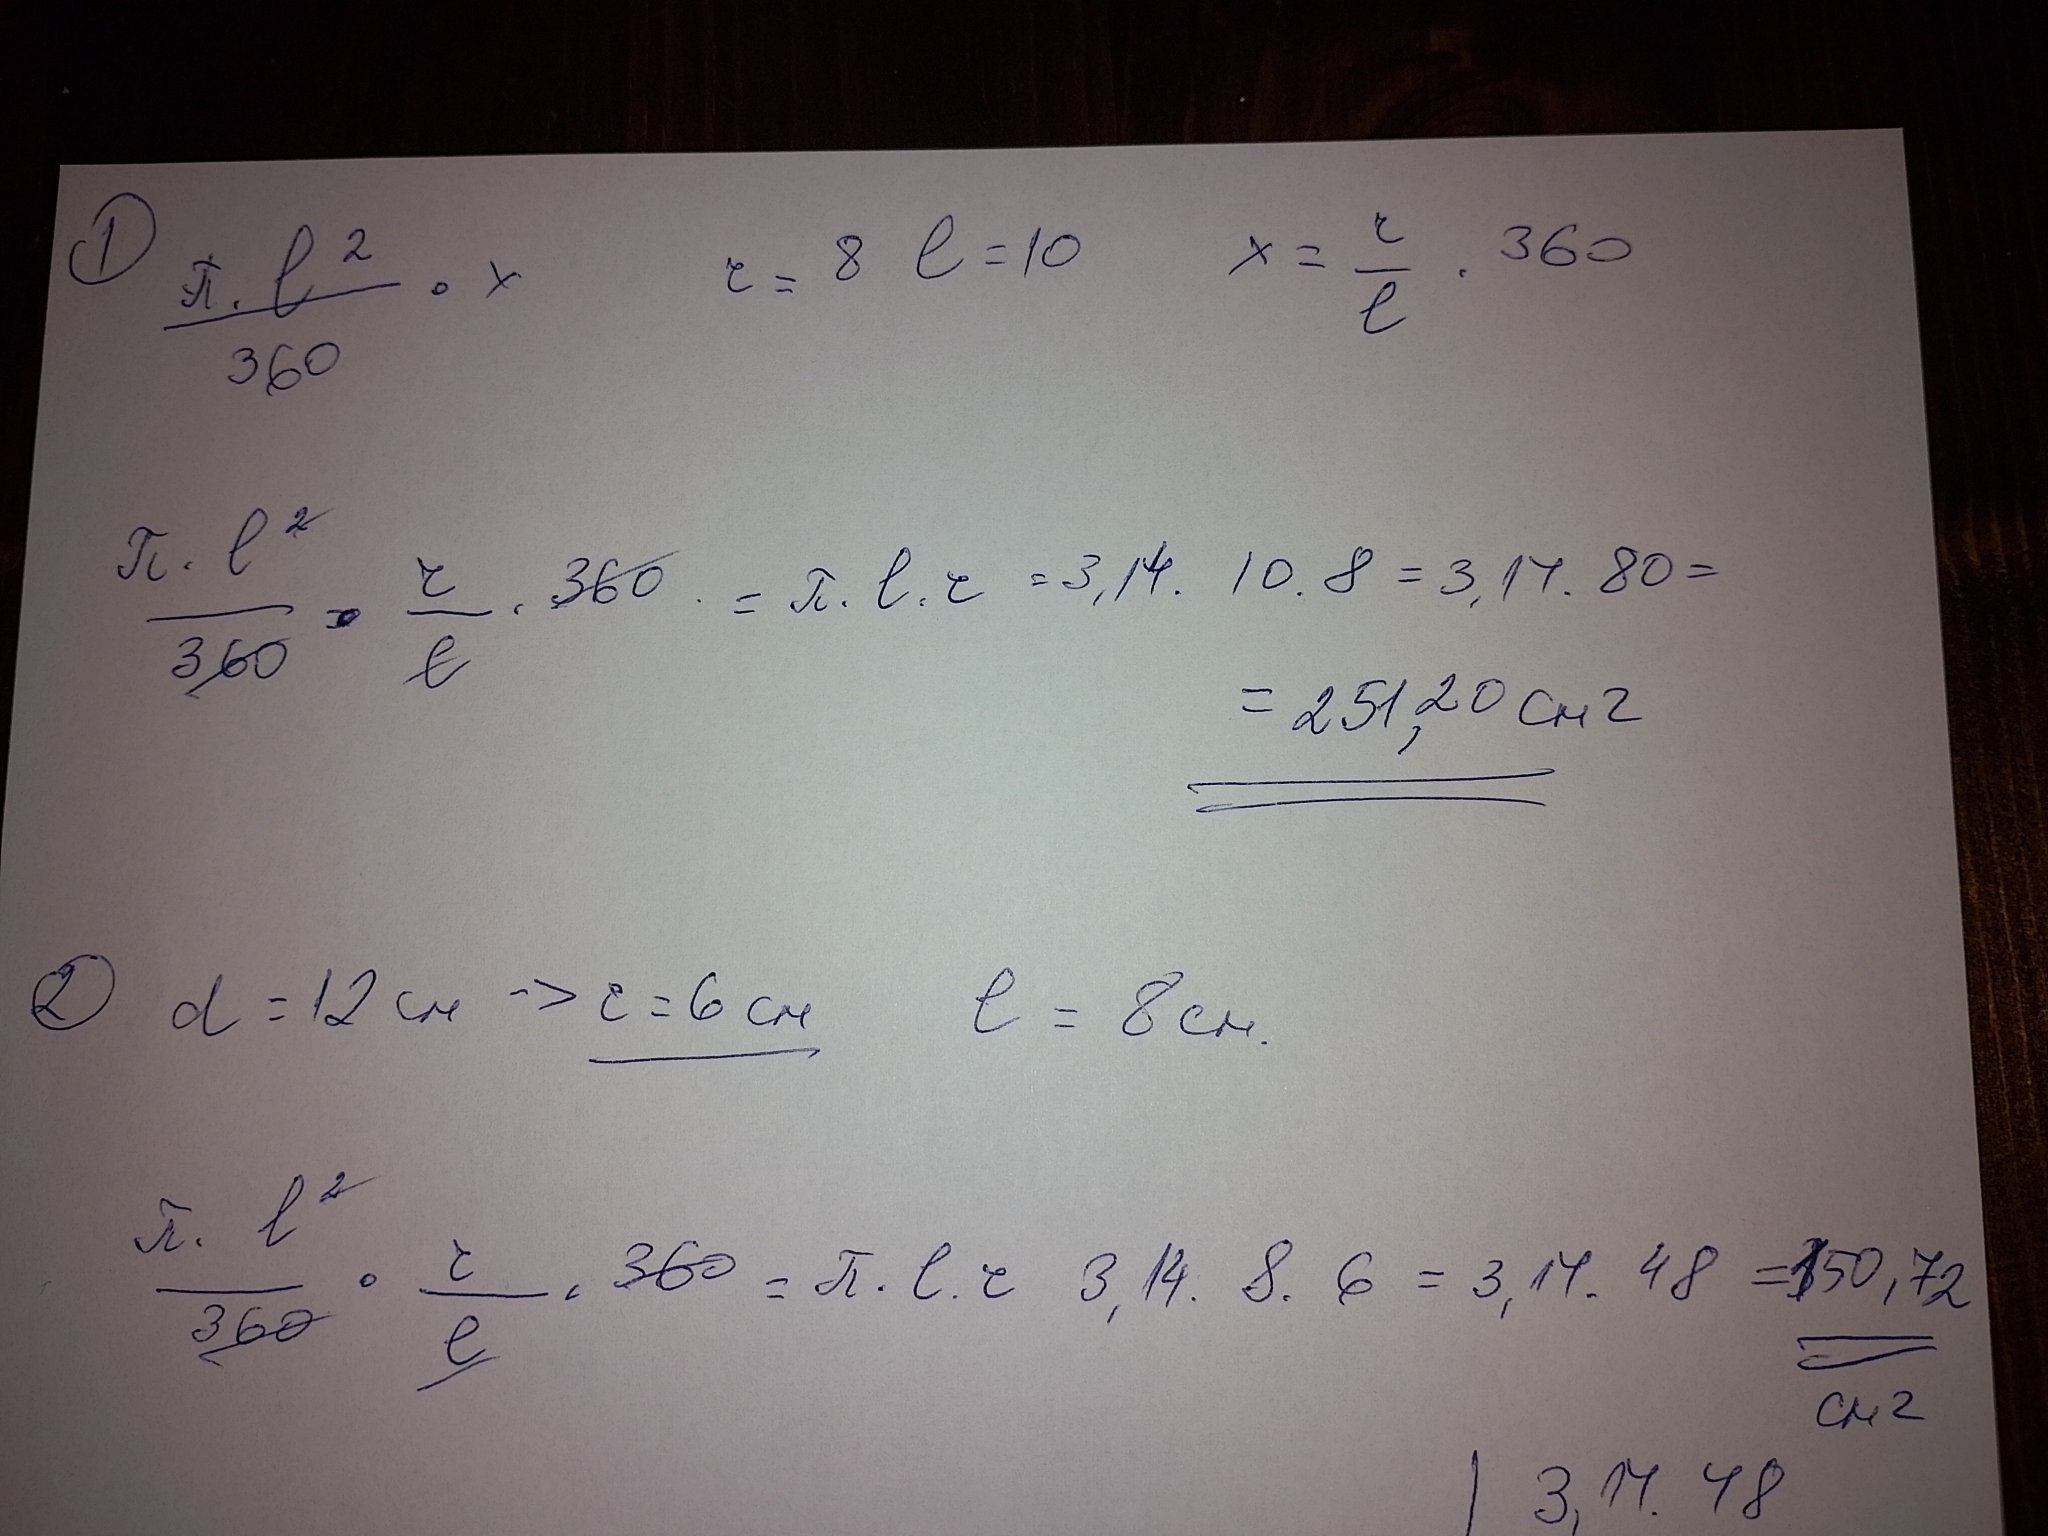 ① π. l² / 360 . x r = 8 l = 10 x = r / l . 360
π. l² / 360 . r / l . 360 = π. l. r = 3,14. 10. 8 = 3,14. 80 =
= 251,20 см2
② d = 12 см -> r = 6 см l = 8 см.
π. l² / 360 . r / l . 360 = π. l. r 3,14. 8. 6 = 3,14. 48 = 150,72
см2
| 3,14. 48